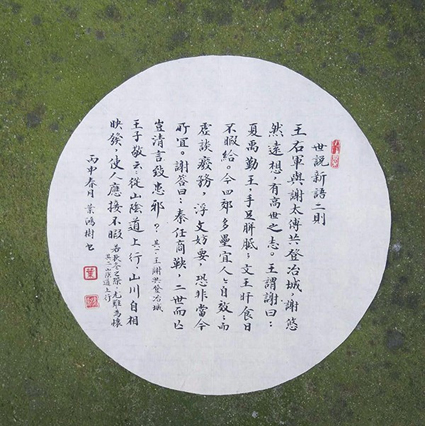 世說新語二則
王右軍與謝太傅共登冶城，謝悠
然遠想，有高世之志。王謂謝曰：
夏禹勤王，手足胼胝；文王旰食，日
不暇給。今四郊多壘，宜人人自效；而
虛談廢務，浮文妨要，恐非當今
所宜。謝答曰：秦任商鞅，二世而亡，
豈清言致患邪？其一 王謝共登冶城
王子敬云：從山陰道上行，山川自相
映發，使人應接不暇。若秋冬之際，尤難為懷
其二 山陰道上行
丙申春月 葉鴻樹書
葉